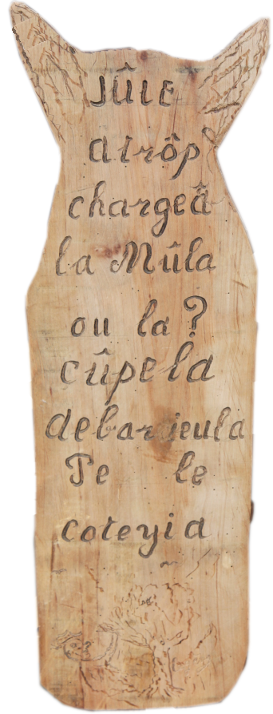 JÛIE
a trôp
chargeâ
la Mûla
ou la ?
cûpela
de
Pe le
coteyia